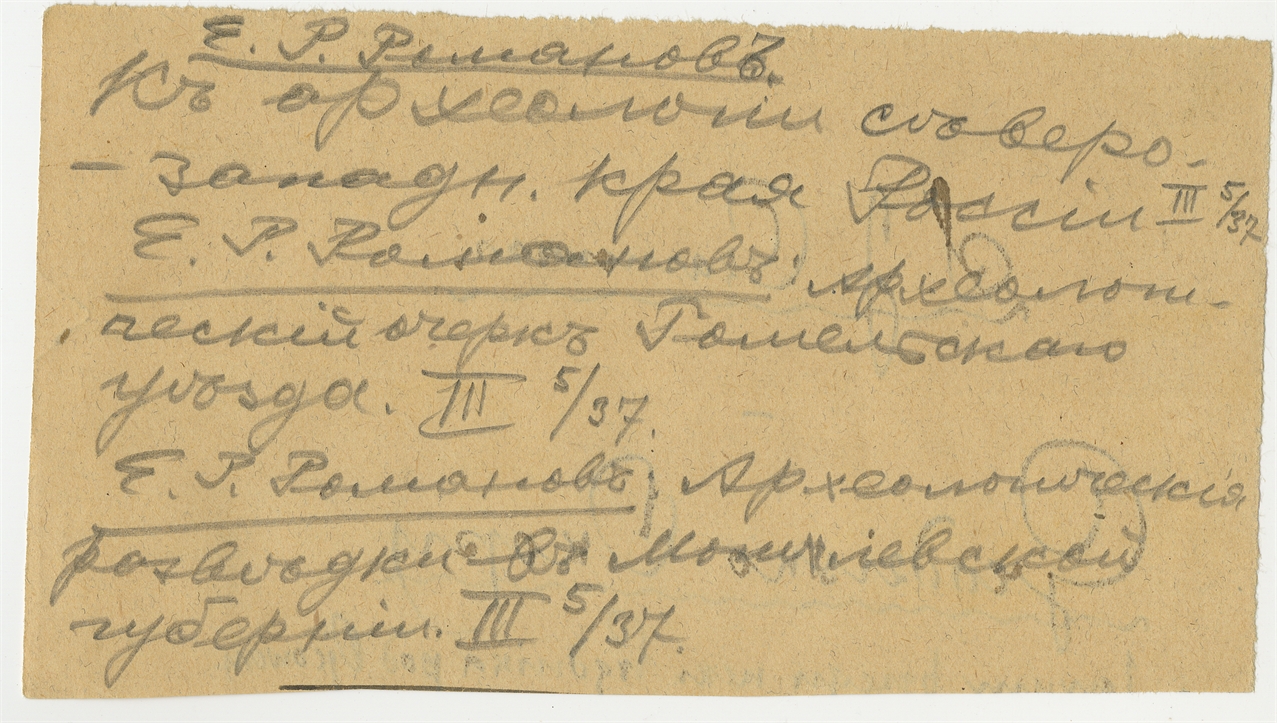 Е. Р. Романовъ.
Къ археологіи сѣверо-
- западн. края Россіи III 5/37
Е. Р. Романовъ. Археологи-
ческій очеркъ Гомельскаго
уѣзда. III 5/37.
Е. Р. Романовъ. Археологическія
розвѣдки въ Могилевской
губерніи. III 5/37.